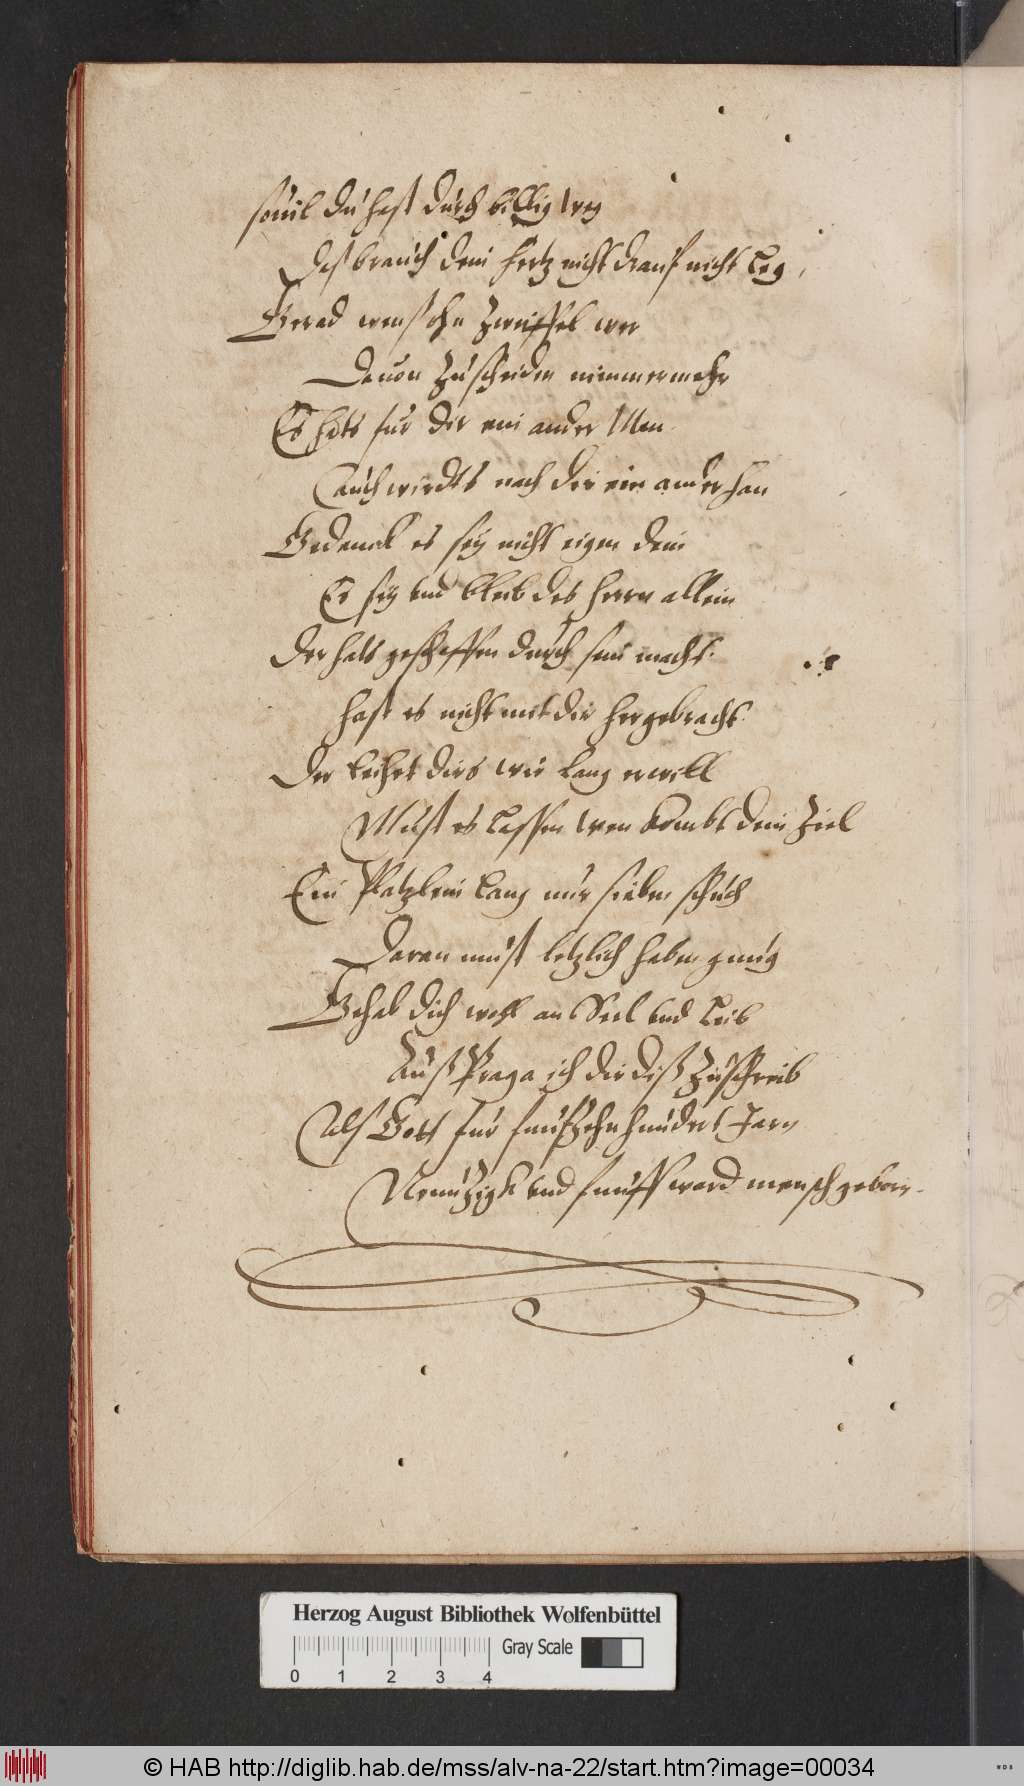 souil du hast durch billig weg
Des brauch dein hertz nicht drauf nicht leg,
Gerad wenst ohn Zweiffel wer
Dauon Zuscheiden nimmermehr
Es hats fur dir ein ander Man
Auch wirdts nach dir ein ander han
Gedenck es sey nicht eigen dein
Es sey vnd bleib des herrn allein
Der hats geschaffen durch sein macht
hast es nicht mit dir hergebracht
Der leihet dirs wie lang er will
Must es lassen wen kombt dein Ziel
Ein Platzlein lang nur sieben schuch
Daran must letzlich haben gnug
Gehab dich wohl an Seel vnd Leib
Auß Praga ich dir diß Zuschreib
Als Gott fur funfzehnhundert Jarn
Neunzigk vnd funff ward mensch geborn.
Herzog August Bibliothek Wolfenbüttel
Gray Scale
0 1 2 3 4
© HAB http://diglib.hab.de/mss/alv-na-22/start.htm?image=00034